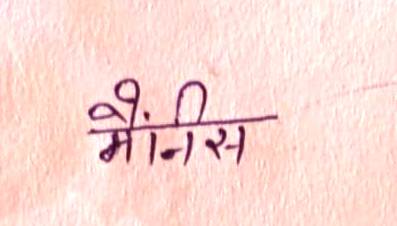 मौंनिस